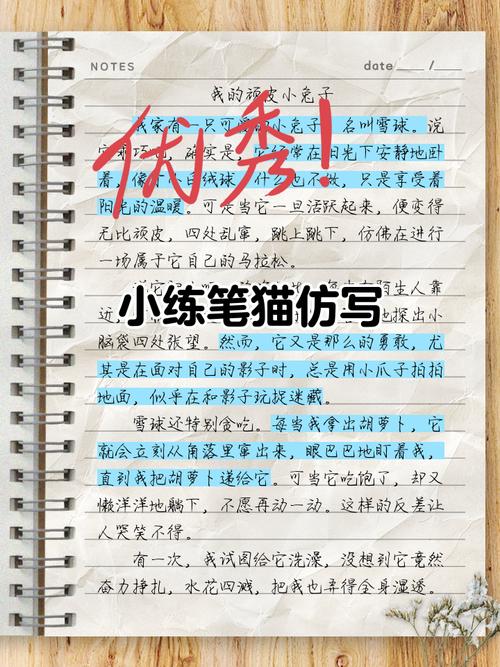 NOTES
date ___ / ___
我的顽皮小兔子
优秀!
我家有一只可爱的小兔子,名叫雪球。说
它顽皮吧,确实是,它经常在阳光下安静地卧
着,像个小白绒球,什么也不做,只是享受着
阳光的温暖。可是当它一旦活跃起来,便变得
无比顽皮,四处乱窜,跳上跳下,仿佛在进行
一场属于它自己的马拉松。
陌生人靠
小练笔猫仿写
近,
地探出小
脑袋四处张望。然而,它又是那么的勇敢,尤
其是在面对自己的影子时,总是用小爪子拍拍
地面,似乎在和影子玩捉迷藏。
雪球还特别贪吃。每当我拿出胡萝卜,它
就会立刻从角落里窜出来,眼巴巴地盯着我,
直到我把胡萝卜递给它。可当它吃饱了,却又
懒洋洋地躺下,不愿再动一动。这样的反差让
人哭笑不得。
有一次,我试图给它洗澡,没想到它竟然
奋力挣扎,水花四溅,把我也弄得全身湿透。